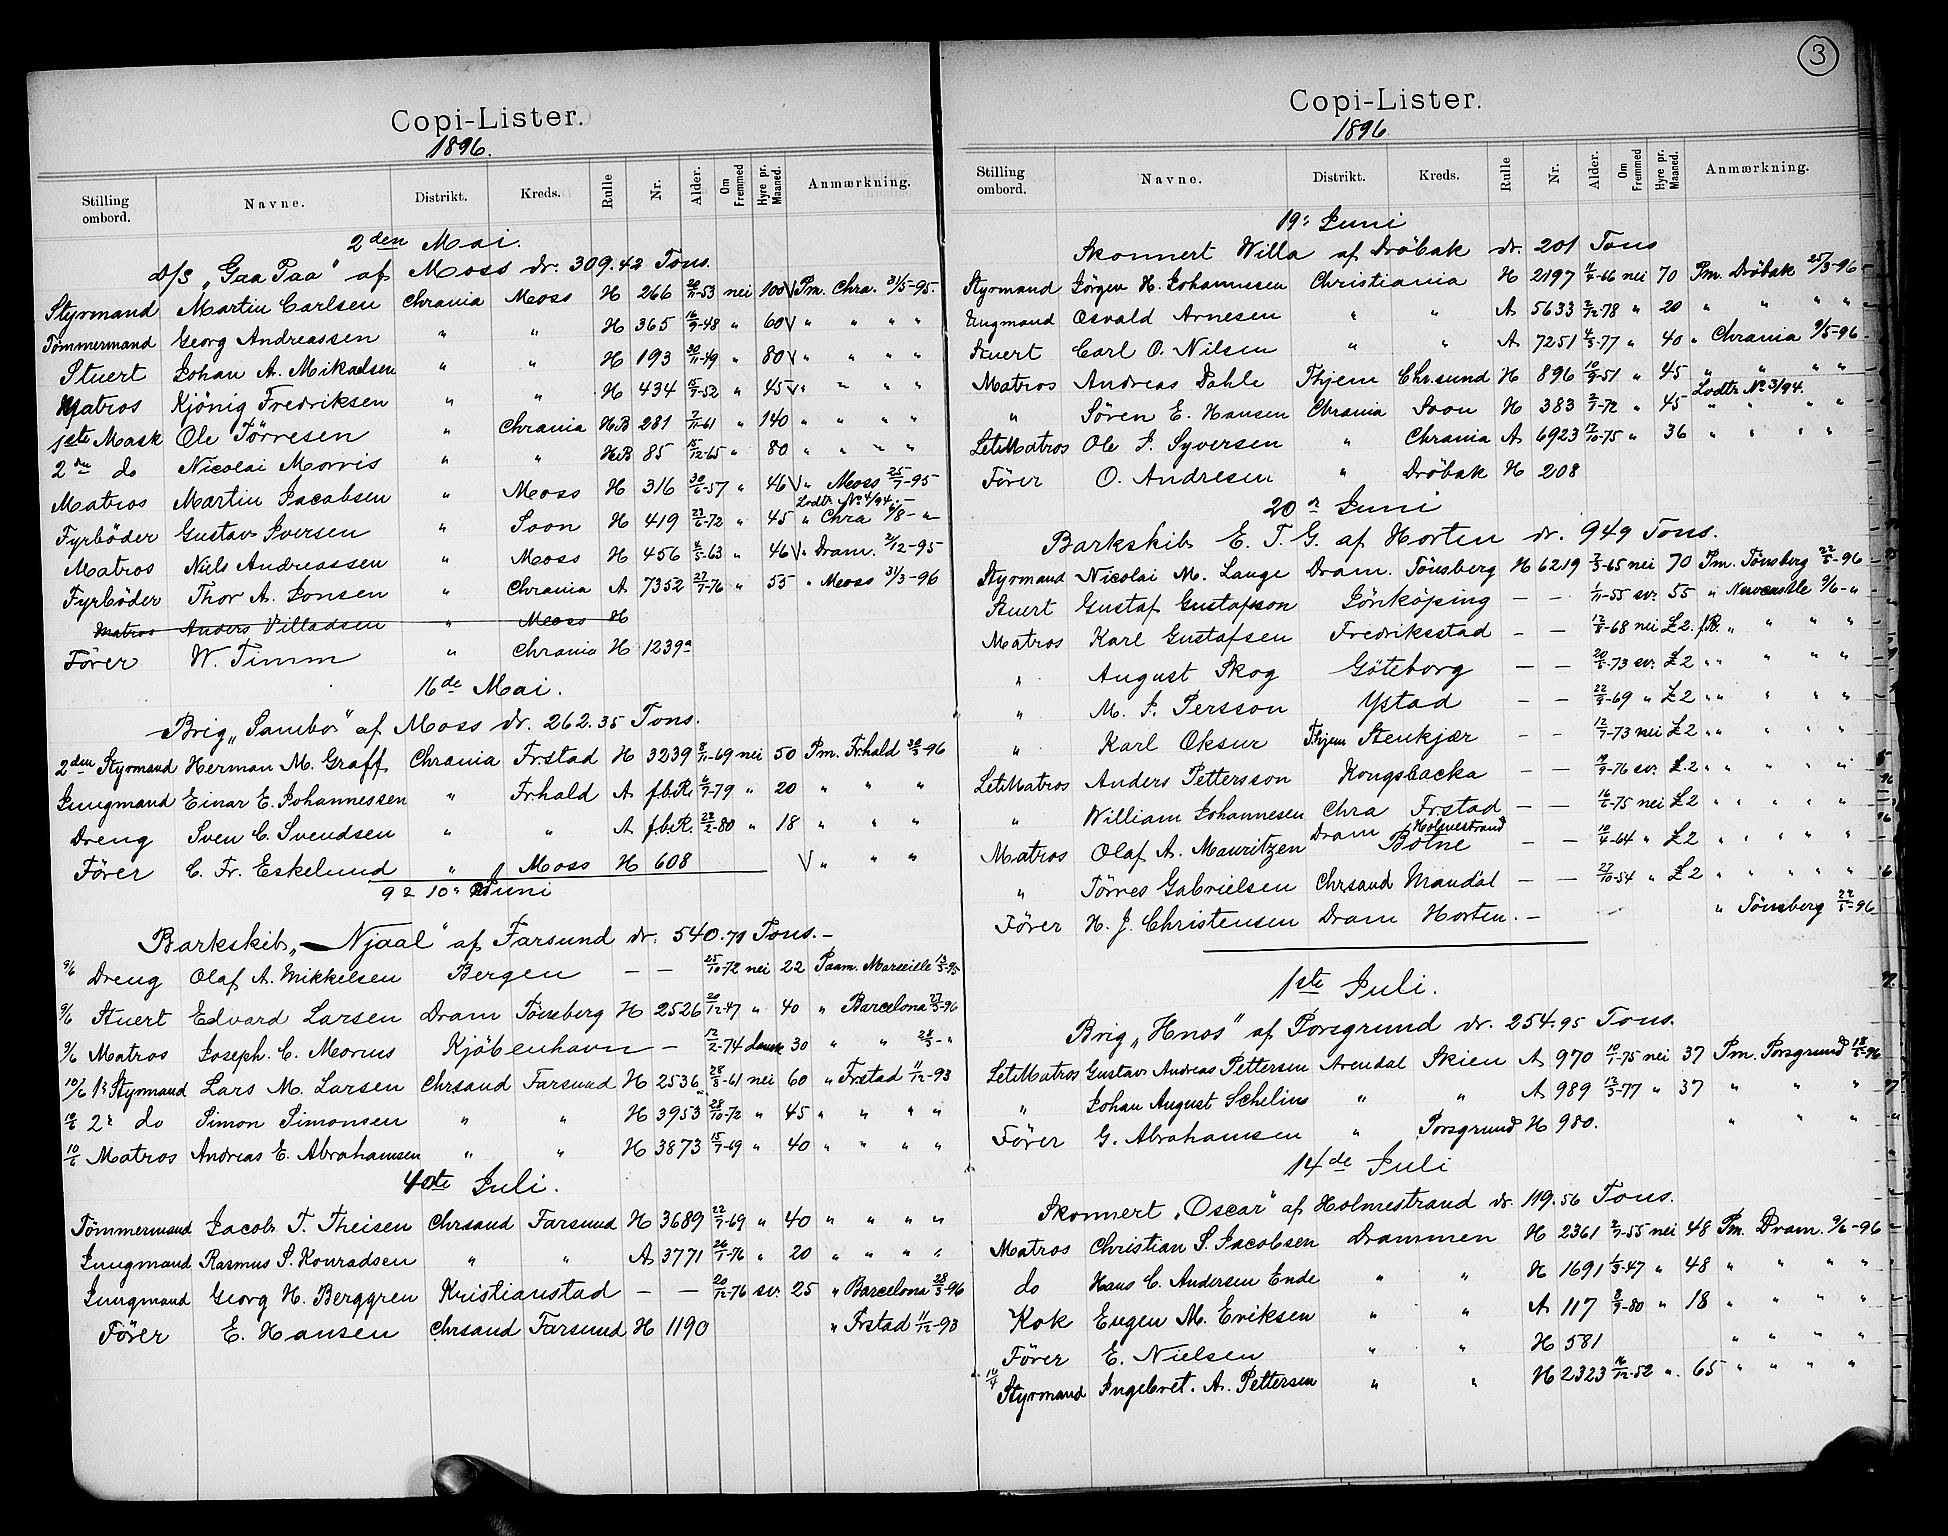 Copi-Lister.
1896.
Stilling ombord. Navne. Distrikt. Kreds. Rulle Nr. Alder. Om Fremmed Hyre pr. Maaned. Anmærkning.
2den Mai.
d/s „Gaa Paa" af Moss dr. 309.42 Tons.
Styrmand Martin Carlsen Chrania Moss H 266 -53 nei 100 V Pm. Chra. 31/5-95
Tömmermand Georg Andreassen " " H 365 16/9-48 " 60 V " " " "
Stuert Johan A. Mikaelsen " " H 193 30/11-49 " 80 V " " " "
Matros Kjönig Fredriksen " " H 434 -52 " 45 V " " " "
1ste Mask Ole Törresen " Chrania HB 281 7/11-61 " 140 " " " "
2den do Nicolai Morris " " HB 85 15/12-65 " 80 " " " "
Matros Martin Jacobsen " Moss H 316 30/6-57 " 46 V " Moss 25/7-95
Lodtr. No 4/94.
Fyrböder Gustav Iversen " Soon H 419 23/6-72 " 45 " Chra 6/8- "
Matros Niels Andreassen " Moss H 456 4/5-63 " 46 V " Dram. 2/12-95
Fyrböder Thor A. Jonsen " Chrania A 7352 27/7-76 " 55 " Moss 31/3-96
Matros Anders Villadsen " Moss H
Förer W. Timm " Chrania H 1239a
16de Mai.
Brig „Sambo" af Moss dr. 262.35 Tons.
2den Styrmand Herman M. Graff Chrania Frstad H 3239 8/11-69 nei 50 Pm. Frhald 30/3-96
Jungmand Einar E. Johannessen " Frhald A f.b.R. 6/7-79 " 20 " " "
Dreng Sven C. Svendsen " " A f.b.R. 22/2-80 " 18 " " "
Förer C. Fr. Eskelund " Moss H 608 V " " "
9 & 10: Juni
Barkskib „Njaal" af Farsund dr. 540.70 Tons.-
9/6 Dreng Olaf A. Mikkelsen Bergen — — 25/10-72 nei 22 Paam. Marseille 12/3-95
9/6 Stuert Edvard Larsen Dram Tönsberg H 2526 20/12-47 " 40 " Barcelona 27/3-96
9/6 Matros Joseph. C. Morius Kjöbenhavn — 12/2-74 dansk 30 " " 28/3- "
10/6 1: Styrmand Lars M. Larsen Chrsand Farsund H 2536 28/3-61 nei 60 " Frstad 11/12-93
10/6 2: do Simon Simonsen " " H 3953 28/10-72 " 45 " " " "
10/6 Matros Andreas E. Abrahamsen " " H 3873 15/7-69 " 40 " " " "
4de Juli.
Tömmermand Jacob T. Theisen Chrsand Farsund H 3689 22/7-69 " 40 " " " "
Jungmand Rasmus S. Konradsen " " A 3771 26/1-76 " 20 " " " "
Jungmand Georg H. Berggren Kristianstad — — 20/12-76 sv. 25 " Barcelona 28/3-96
Förer E. Hansen Chrsand Farsund H 1190 " Frstad 11/12-93
3
Copi-Lister.
1896
Stilling ombord. Navne. Distrikt. Kreds. Rulle Nr. Alder. Om Fremmed Hyre pr. Maaned. Anmærkning.
19: Juni
Skonnert Willa af Dröbak dr. 201 Tons
Styrmand Jörgen H. Johannesen Christiania H 2197 -66 nei 70 Pm. Dröbak 25/3-96
Ungmand Osvald Arnesen " " A 5633 2/12-78 " 20 " " " "
Stuert Carl O. Nilsen " " A 7251 4/5-77 " 40 " Chrania 9/5-96
Matros Andreas Dahle Thjem Chr.sund H 896 10/9-51 " 45 " " " "
Lodtr. No 3/94.
" Sören E. Hansen Chrania Soon H 383 2/7-72 " 45 " " " "
LetMatros Ole J. Syversen " Chrania A 6923 17/10-75 " 36 " " " "
Förer O. Andresen " Dröbak H 208
20de Juni
Barkskib E. T. G. af Horten dr. 949 Tons.
Styrmand Nicolai M. Lange Dram. Tönsberg H 6219 -65 nei 70 Pm. Tönsberg 22/5-96
Stuert Gustaf Gustafson Jönköping — — 1/11-55 sv. 55 " Newcastle 9/6- "
Matros Karl Gustafsen Fredriksstad — — -68 nei £ 2. " " " "
" August Skog Göteborg — — -73 sv. £ 2 " " " "
" M. J. Persson Ystad — — -69 " £ 2 " " " "
" Karl Oksur Thjem Stenkjær — — -73 nei £ 2 " " " "
LetMatros Anders Pettersson Kongsbacka — — -76 sv. £ 2 " " " "
" William Johannesen Chra Frstad — — 16/6-75 nei £ 2 " " " "
Matros Olaf A. Mauritzen Dram Holmestrand Botne — — 10/4-64 " £ 2 " " " "
" Törres Gabrielsen Chrsand Mandal — — 27/10-54 " £ 2 " " " "
Förer H. J. Christensen Dram Horten. — " Tönsberg 22/5-96
1ste Juli.
Brig „Hnos" af Porsgrund dr. 254.95 Tons.
LetMatros Gustav Andreas Pettersen Arendal Skien A 970 10/1-75 nei 37 Pm. Porsgrund 18/5-96
" Johan August Schelins " " A 989 12/3-77 " 37 " " "
Förer G. Abrahamsen " Porsgrund H 980. " " "
14de Juli
Skonnert „Oscar" af Holmestrand dr. 119.56 Tons.
Matros Christian S. Jacobsen Drammen H 2361 2/7-55 nei 48 Pm. Dram. 9/6-96
do Hans C. Andersen Ende " " H 1691 1/3-47 " 48 " " " "
Kok Eugen M. Eriksen " " A 117 8/9-80 " 18 " " " "
Förer E. Nielsen " " H 581 " " " "
Styrmand Ingebret. A. Pettersen " " H 2323 16/12-52 " 65 " " " "